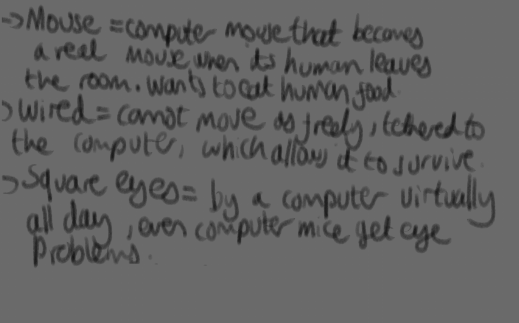 ->Mouse = computer mouse that becomes
a real mouse when its human leaves
the room. wants to eat human food.
>Wired = cannot move as freely, tethered to
the computer, which allows it to survive.
>Square eyes = by a computer virtually
all day, even computer mice get eye
problems.